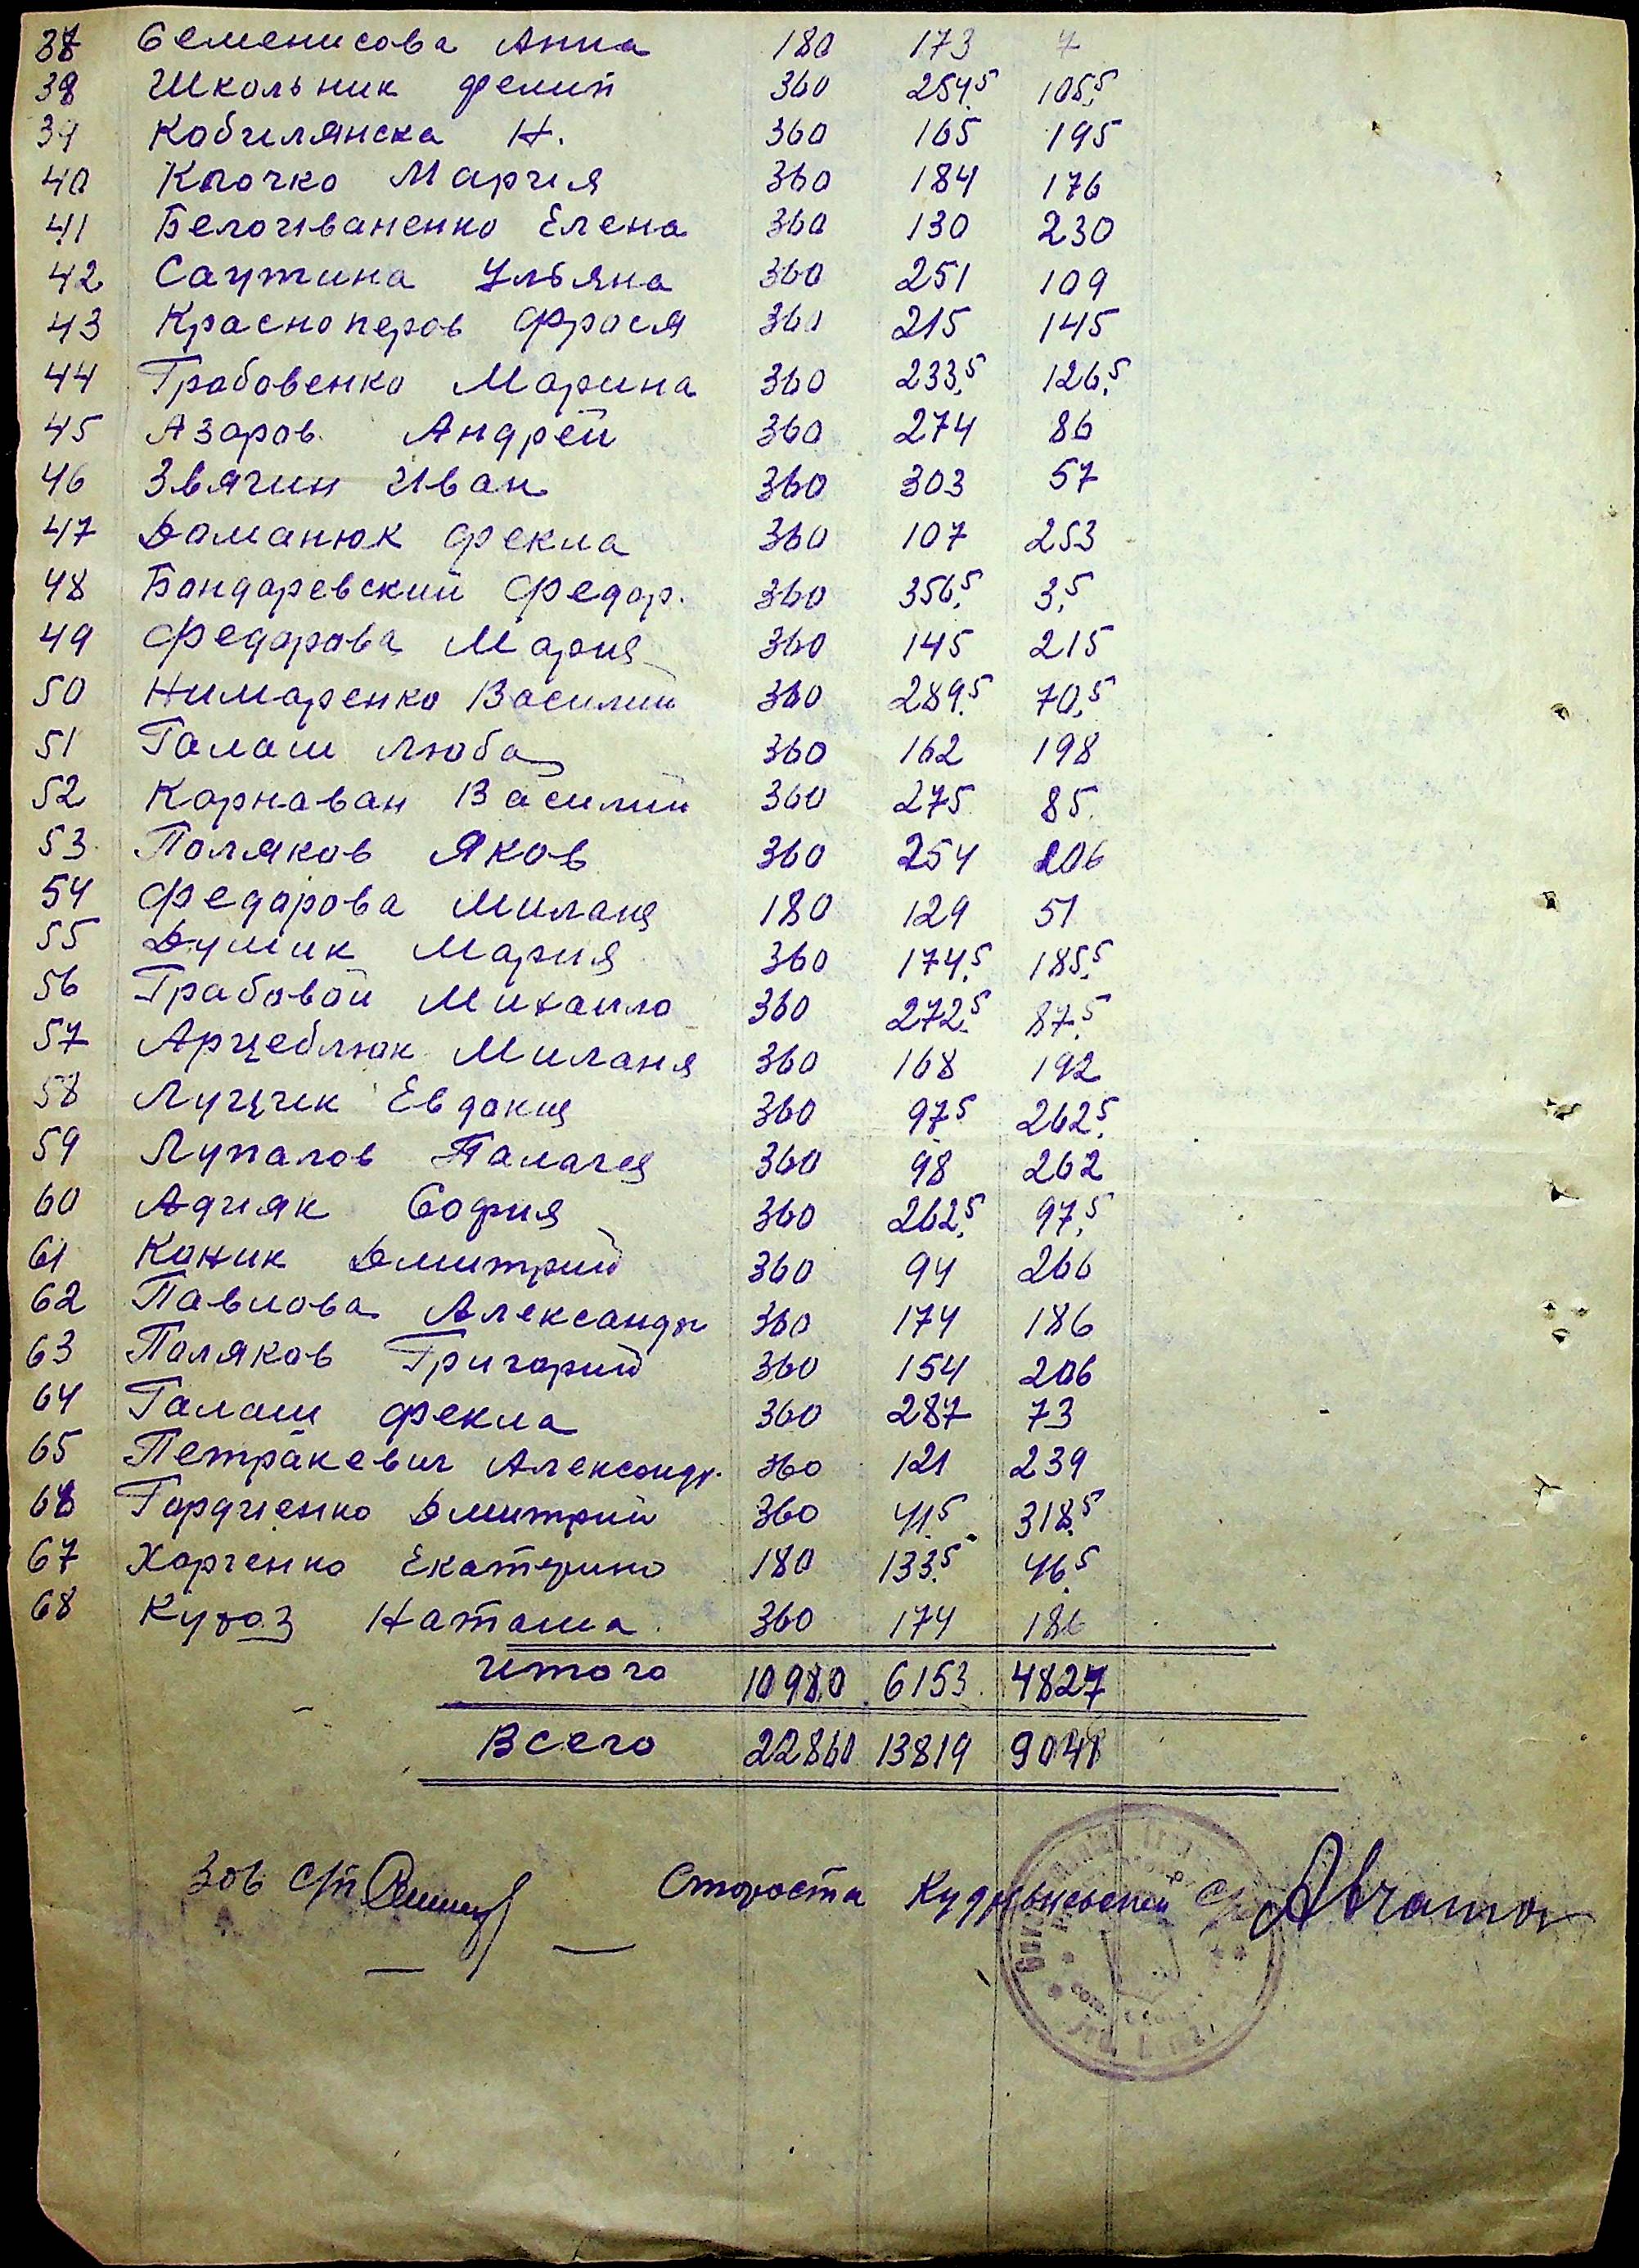 37 Семенисова Анна 180 173 7
38 Школьник Фелип 360 254,5 105,5
39 Кобилянска Н. 360 165 195
40 Клочко Мария 360 184 176
41 Белоиваненко Елена 360 130 230
42 Саутина Ульяна 360 251 109
43 Красноперов Фрося 360 215 145
44 Грабовенко Марина 360 233,5 126,5
45 Азаров Андрей 360 274 86
46 Звягин Иван 360 303 57
47 Доманюк Фекла 360 107 253
48 Бондаревский Федор. 360 356,5 3,5
49 Федорова Мария 360 145 215
50 Нимаренко Василий 360 289,5 70,5
51 Галаш Люба 360 162 198
52 Карнаван Василий 360 275 85
53 Поляков Яков 360 254 206
54 Федорова Миланя 180 129 51
55 Думик Мария 360 174,5 185,5
56 Грабовой Михаило 360 272,5 87,5
57 Арцеблюк Миланя 360 168 192
58 Евдокия 360 97,5 262,5
59 Лупалов Палагея 360 98 262
60 Адияк София 360 262,5 97,5
61 Коник Дмитрий 360 94 266
62 Павлова Александр 360 174 186
63 Поляков Григорий 360 154 206
64 Галаш Фекла 360 287 73
65 Петракевич Александр. 360 121 239
66 Гордиенко Дмитрий 360 41,5 318,5
67 Харченко Екатерина 180 133,5 46,5
68 Наташа 360 174 186
Итого 10980 6153 4827
Всего 22860 13819 9041
Зав с/п Староста с/у Abramov